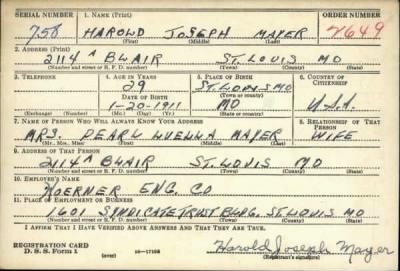 SERIAL NUMBER 1. NAME (Print) ORDER NUMBER
758 HAROLD JOSEPH MAYER 2649
(First) (Middle) (Last)
2. ADDRESS (Print)
2114 A BLAIR ST. LOUIS MO
(Number and street or R. F. D. number) (Town) (County) (State)
3. TELEPHONE 4. AGE IN YEARS 5. PLACE OF BIRTH 6. COUNTRY OF CITIZENSHIP
29 ST. LOUIS MO
DATE OF BIRTH (Town or county)
1-20-1911 MO U.S.A.
(Exchange) (Number) (Mo.) (Day) (Yr.) (State or country)
7. NAME OF PERSON WHO WILL ALWAYS KNOW YOUR ADDRESS 8. RELATIONSHIP OF THAT PERSON
MRS. PEARL LUELLA MAYER WIFE
(Mr., Mrs., Miss) (First) (Middle) (Last)
9. ADDRESS OF THAT PERSON
2114 A BLAIR ST. LOUIS MO
(Number and street or R. F. D. number) (Town) (County) (State)
10. EMPLOYER'S NAME
WOERNER ENG. CO
11. PLACE OF EMPLOYMENT OR BUSINESS
1601 SYNDICATE TRUST BLDG. ST. LOUIS MO
(Number and street or R. F. D. number) (Town) (County) (State)
I AFFIRM THAT I HAVE VERIFIED ABOVE ANSWERS AND THAT THEY ARE TRUE.
REGISTRATION CARD
D. S. S. Form 1 (over) 16-17105 Harold Joseph Mayer
(Registrant's signature)